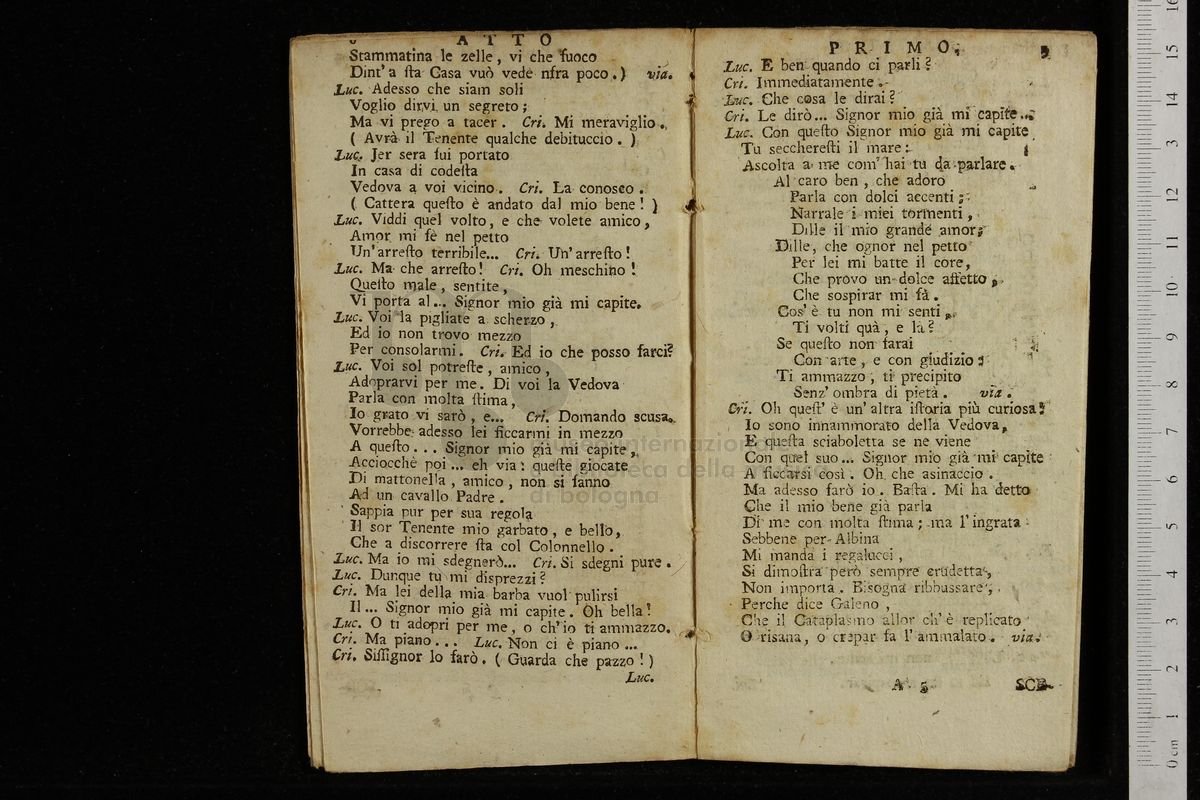 ATTO
Stammatina le zelle, vi che fuoco
Dint' a ſta Casa vuò vede nfra poco.) via.
Luc. Adesso che siam soli
Voglio dirvi un segreto;
Ma vi prego a tacer. Cri. Mi meraviglio.
( Avrà il Tenente qualche debituccio. )
Luc. Jer sera fui portato
In casa di codeſta
Vedova a voi vicino. Cri. La conosco.
( Cattera queſto è andato dal mio bene! )
Luc. Viddi quel volto, e che volete amico,
Amor mi fè nel petto
Un' arreſto terribile... Cri. Un' arreſto!
Luc. Ma che arreſto! Cri. Oh meschino!
Queſto male, sentite,
Vi porta al... Signor mio già mi capite.
Luc. Voi la pigliate a scherzo,
Ed io non trovo mezzo
Per consolarmi. Cri. Ed io che posso farci?
Luc. Voi sol potreſte, amico,
Adoprarvi per me. Di voi la Vedova
Parla con molta ſtima,
Io grato vi sarò, e... Cri. Domando scusa.
Vorrebbe adesso lei ficcarmi in mezzo
A queſto... Signor mio già mi capite,
Acciocchè poi... eh via: queſte giocate
Di mattonella, amico, non si fanno
Ad un cavallo Padre.
Sappia pur per sua regola
Il sor Tenente mio garbato, e bello,
Che a discorrere ſta col Colonnello.
Luc. Ma io mi sdegnerò... Cri. Si sdegni pure.
Luc. Dunque tu mi disprezzi?
Cri. Ma lei della mia barba vuol pulirsi
Il... Signor mio già mi capite. Oh bella!
Luc. O ti adopri per me, o ch' io ti ammazzo.
Cri. Ma piano... Luc. Non ci è piano...
Cri. Siſſignor lo farò. ( Guarda che pazzo! )
Luc.
PRIMO. 9
Luc. E ben quando ci parli?
Cri. Immediatamente.
Luc. Che cosa le dirai?
Cri. Le dirò... Signor mio già mi capite...
Luc. Con queſto Signor mio già mi capite
Tu seccchereſti il mare:
Ascolta a me com' hai tu da parlare.
Al caro ben, che adoro
Parla con dolci accenti;
Narrale i miei tormenti,
Dille il mio grande amor;
Dille, che ognor nel petto
Per lei mi batte il core,
Che provo un dolce affetto,
Che sospirar mi fà.
Cos' è tu non mi senti,
Ti volti quà, e là?
Se queſto non farai
Con arte, e con giudizio:
Ti ammazzo, ti precipito
Senz' ombra di pietà. via.
Cri. Oh queſt' è un' altra iſtoria più curiosa!
Io sono innammorato della Vedova,
E queſta sciaboletta se ne viene
Con quel suo... Signor mio già mi capite
A ficcarsi così. Oh che asinaccio.
Ma adesso farò io. Baſta. Mi ha detto
Che il mio bene già parla
Di me con molta ſtima; ma l' ingrata
Sebbene per Albina
Mi manda i regalucci,
Si dimoſtra però sempre crudetta,
Non importa. Bisogna ribbussare,
Perche dice Galeno,
Che il Cataplasmo allor ch' è replicato
O risana, o crepar fa l' ammalato. via.
A 5 SCE-
museo internazionale
biblioteca della musica
di bologna